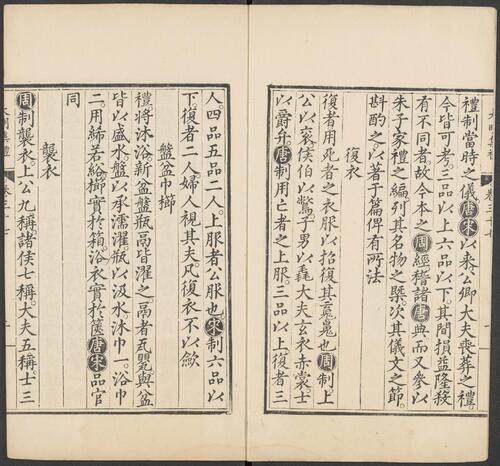 禮制當時之儀唐宋以來公卿大夫喪葬之禮
今皆可考三品以上六品以下其間損益隆殺
有不同者故今本之周經稽諸唐典而又參以
朱子家禮之編列其名物之槩次其儀文之節
斟酌之以著于篇俾有所法
復衣
復者用死者之衣服以招復其魂魄也周制上
公以衮侯伯以鷩子男以毳大夫玄衣赤裳士
以爵弁唐制用亡者之上服三品以上復者三
人四品五品二人上服者公服也宋制六品以
下復者二人婦人視其夫凡復衣不以歛
盤盆巾櫛
禮將沐浴新盆盤瓶鬲皆濯之鬲者瓦甖與盆
皆以盛水盤以承濡濯瓶以汲水沐巾一浴巾
二用絺若綌櫛實於箱浴衣實於篋唐宋品官
同
襲衣
周制襲衣上公九稱諸侯七稱大夫五稱士三